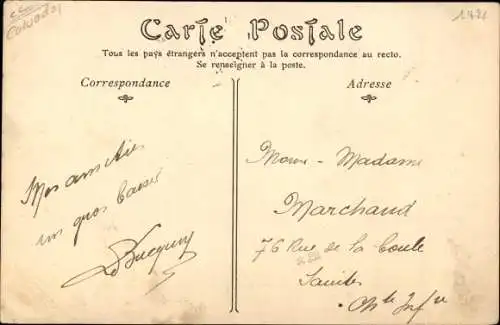 Calvados
Carte Postale
Tous les pays étrangers n'acceptent pas la correspondance au recto.
Se renseigner à la poste.
Correspondance
Adresse
un gros baiser
Madame
Marchand
76 Rue de la Boule
Saintes
Ch^te Inf^re